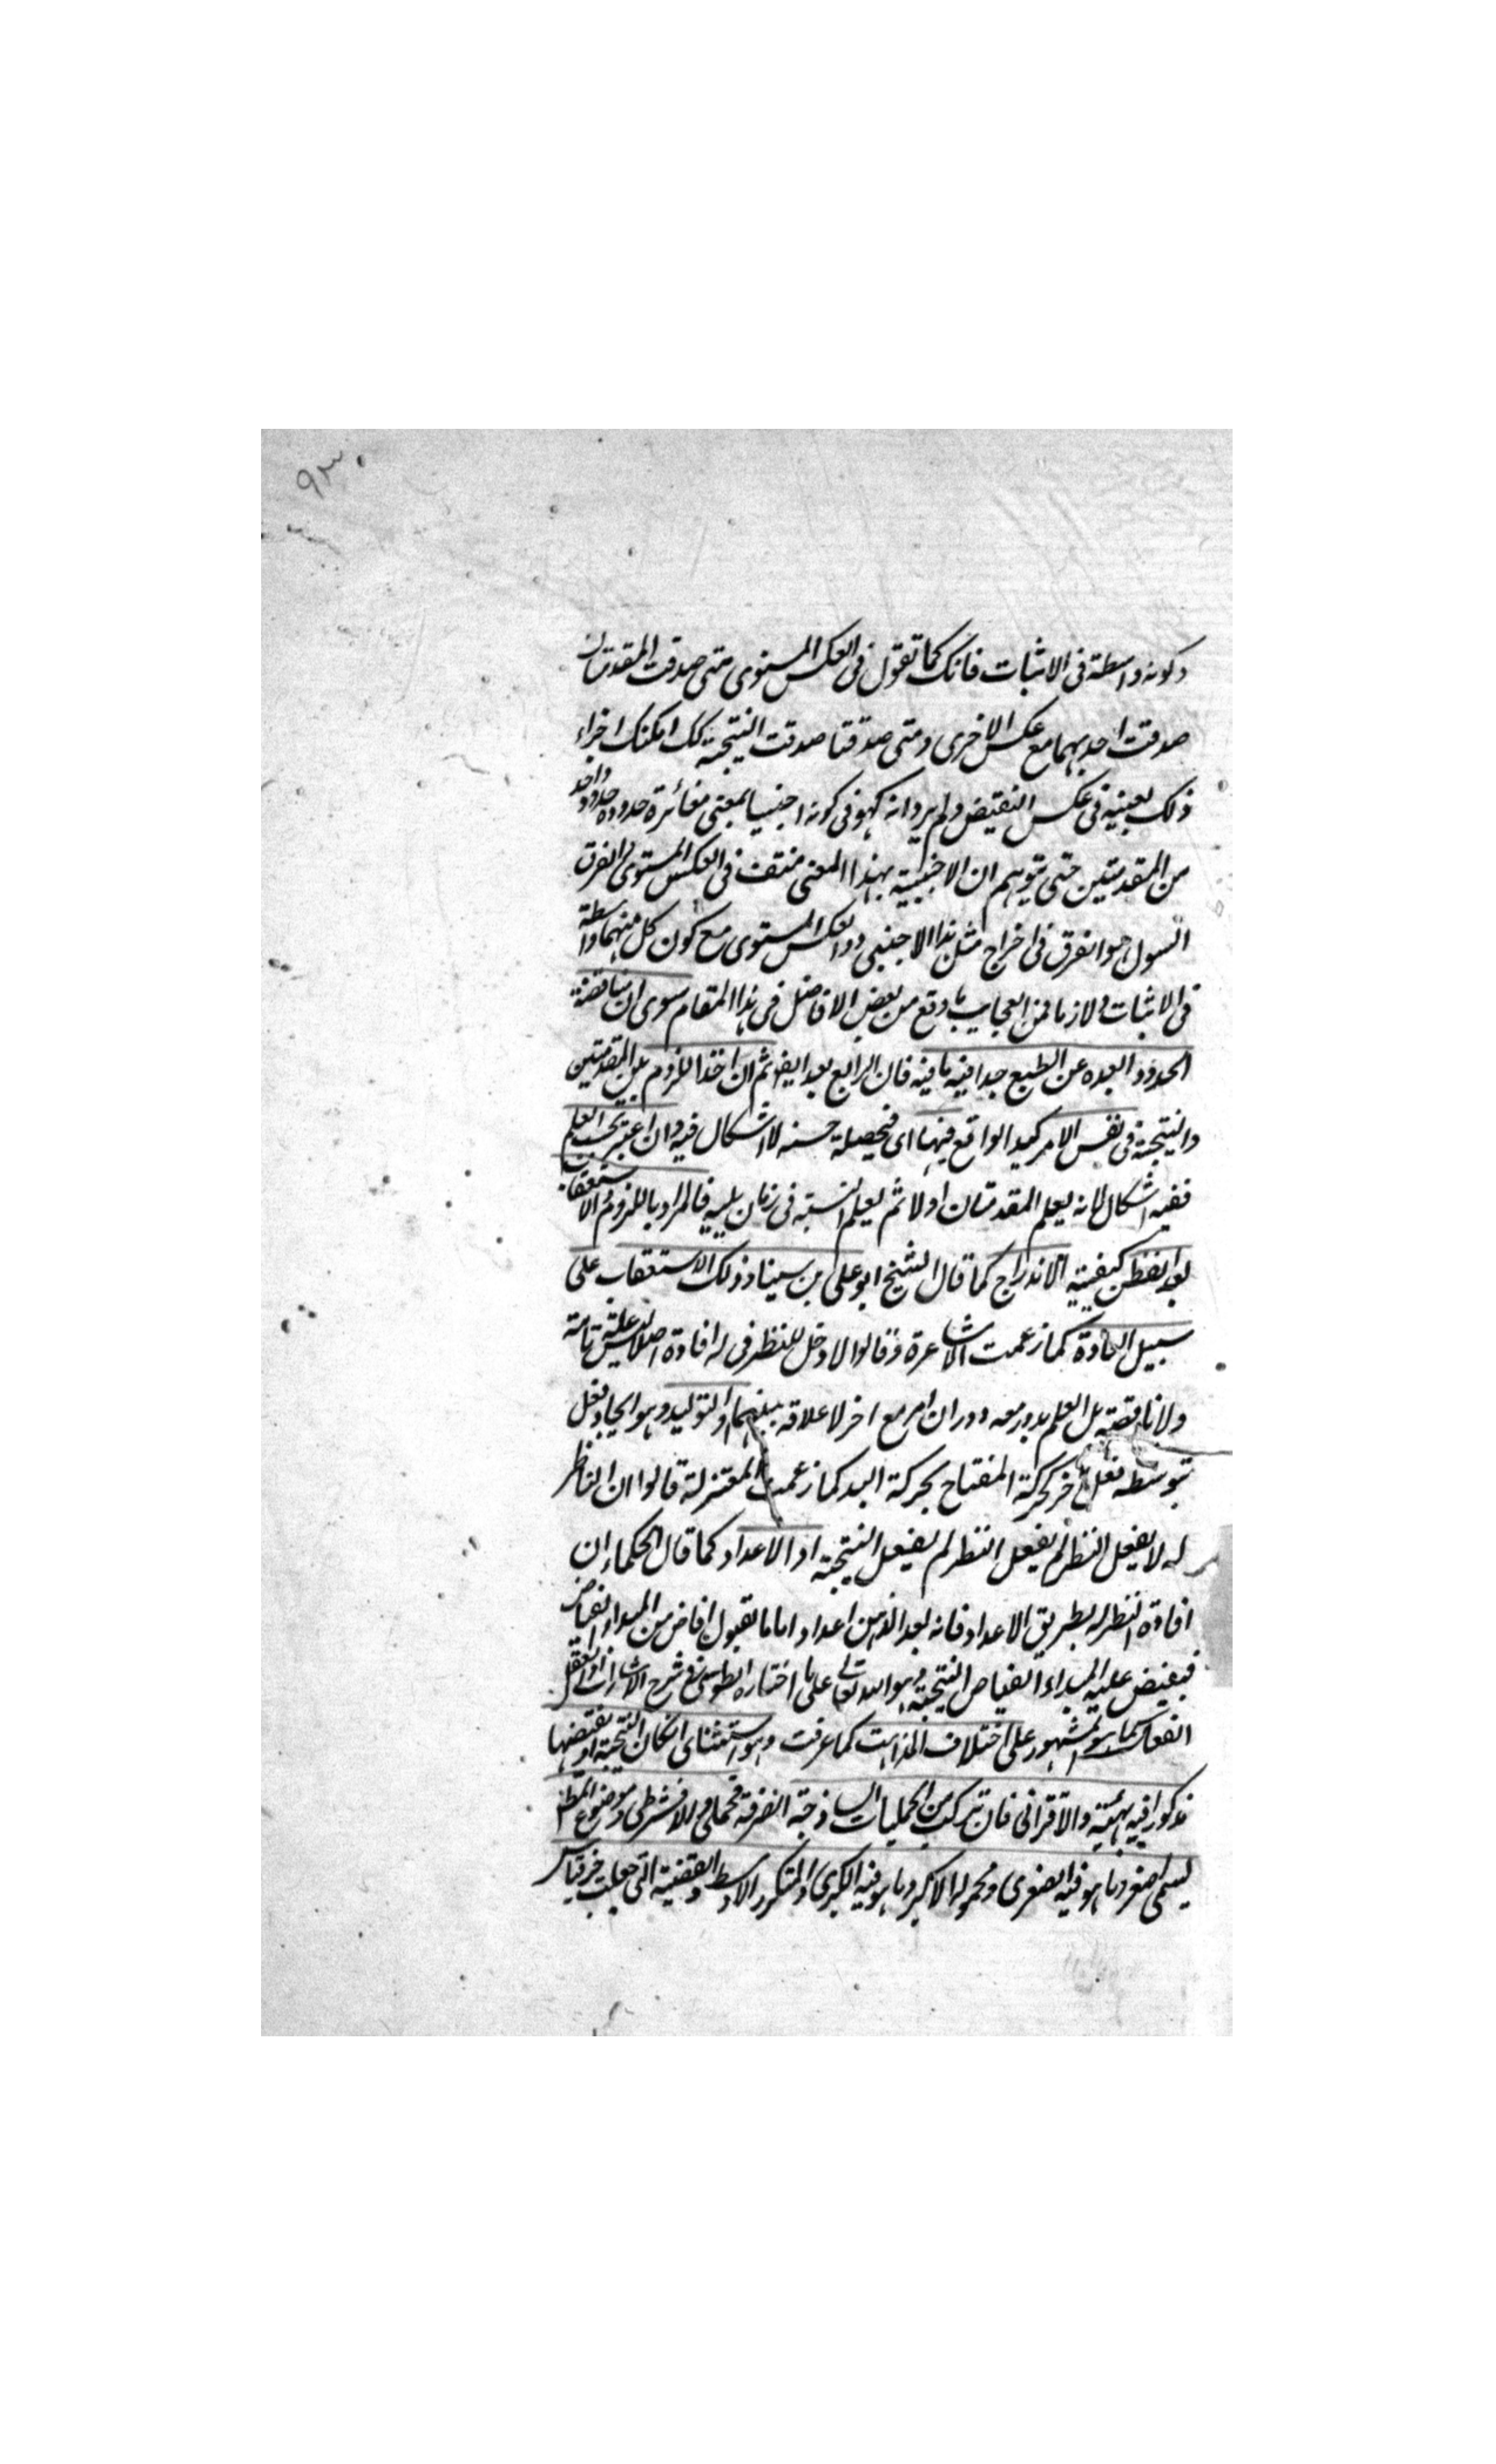 ٩٣
وكونه واسطة فى الاثبات فانك كما تقول فى العكس المستوى متى صدقت المقدمتان
صدقت احديهما مع عكس الاخرى ومتى صدقتا صدقت النتيجة كك امكنك اجراء
ذلك بعينه فى عكس النقيض ولم يرد انه كهو فى كونه اجنبيا بمعنى مغائرة حدوده حدود واحد
من المقدمتين حتى يتوهم ان الاجنبية بهذا المعنى منتف فى العكس المستوى الفرق
السول هو الفرق فى اخراج مثل هذا الاجنبى دو العكس المستوى مع كون كل منهما واسطة
فى الاثبات ولازما فمن العجايب ما وقع من بعض الافاضل فى هذا المقام سوى ان مناقضة
الحدود ابعده عن الطبع جدا فيه ما فيه فان الرابع بعد ايضا ثم ان اخذ اللزوم بين المقدمتين
والنتيجة فى نفس الامر الواقع فيها اى فتحصيله حسنه لا اشكال فيه وان اعتبر بحسب العلم
ففيه اشكال لانه يعلم المقدمتان اولا ثم يعلم النتيجة فى زمان يليه فالمراد باللزوم الاستعقاب
بعد تفطن كيفية الاندراج كما قال الشيخ ابو على بن سينا وذلك الاستعقاب على
سبيل العادة كما زعمت الاشاعرة وقالوا لا دخل للنظر فى له افادة اصلا ليس علية تامة
ولا ناقصة بل العلم يدور معه دوران امر مع اخر لا علاقه بينهما او التوليد وهو ايجاد فعل
بتوسطه فعل اخر كحركة المفتاح بحركة اليد كما زعمت المعتزلة قالوا ان الناظر
له لا يفعل النظر لم يفعل النظر لم يفعل النتيجة او الاعداد كما قال الحكماء ان
افادة النظر له بطريق الاعداد فانه يعد الذهن اعدادا ما لقبول افاض من المبداء الفياض
فيفيض عليه المبداء الفياض النتيجة وهو الله تعالى على ما اختاره الطوسى فى شرح الاشارات او العقل
الفعال كما هو المشهور على اختلاف المذاهب كما عرفت وهو استثنائى ان كان النتيجة او نقيضها
مذكورا فيه بهيئته والاقترانى فان تركب من الحمليات الساذجة الصرفة فحملى والا فشرطى وموضوع المط
يسمى اصغر وما هو فيه الصغرى ومحموله الاكبر وما هو فيه الكبرى والمتكرر الاوسط والقضية التى جعلت جزء قياس